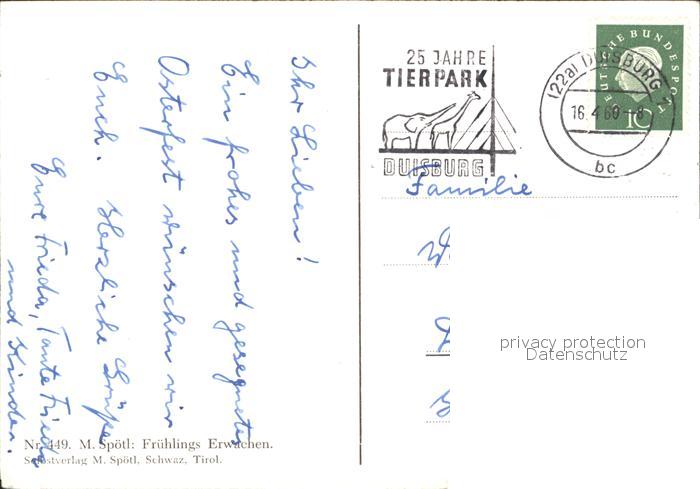 Ihr Lieben!
Ein frohes und gesegnetes
Osterfest wünschen wir
Euch. Herzliche Grüße
Eure Frieda, Tante Frieda
und Kinder.
Nr. 449. M. Spötl: Frühlings Erwachen.
Selbstverlag M. Spötl, Schwaz, Tirol.
25 JAHRE
TIERPARK
DUISBURG
(22a) DUISBURG 1
16.4.60-8
bc
DEUTSCHE BUNDESPOST
10
Familie
privacy protection
Datenschutz